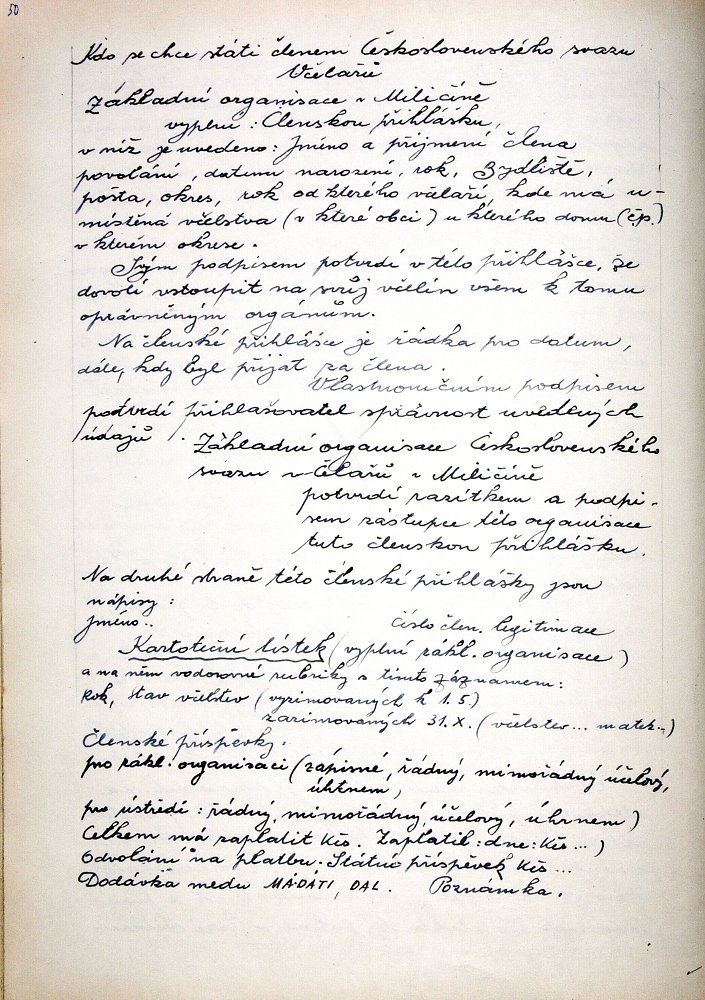 50
Kdo se chce státi členem Československého svazu
Včelařů
Základní organisace v Miličíně
vyplní: Členskou přihlášku,
v níž je uvedeno: Jméno a příjmení člena
povolání, datum narození, rok, Bydliště,
pošta, okres, rok od kterého včelaří, kde má u-
místěná včelstva (v které obci) u kterého domu (čp.)
v kterém okrese.
Svým podpisem potvrdí v této přihlášce, že
dovolí vstoupit na svůj včelín všem k tomu
oprávněným orgánům.
Na členské přihlášce je řádka pro datum,
dále, kdy byl přijat za člena.
Vlastnoručním podpisem
potvrdí přihlašovatel správnost uvedených
údajů.
Základní organisace Československého
svazu včelařů v Miličíně
potvrdí razítkem a podpi-
sem zástupce této organisace
tuto členskou přihlášku.
Na druhé straně této členské přihlášky jsou
nápisy:
Jméno..
Číslo člen. legitimace
Kartoteční lístek (vyplní zákl. organisace)
a na něm vodorovné rubriky s tímto záznamem:
Rok, stav včelstev (vyzimovaných k 1.5.)
zazimovaných 31.X. (včelstev... matek..)
Členské příspěvky.
pro zákl. organisaci (zápisné, řádný, mimořádný účelový,
úhrnem,
pro ústředí: řádný, mimořádný, účelový, úhrnem)
Celkem má zaplatit Kčs. Zaplatil: dne: Kčs...)
Odvolání na platbu. Státní příspěvek Kčs...
Dodávka medu MÁ DÁTI, DAL. Poznámka.